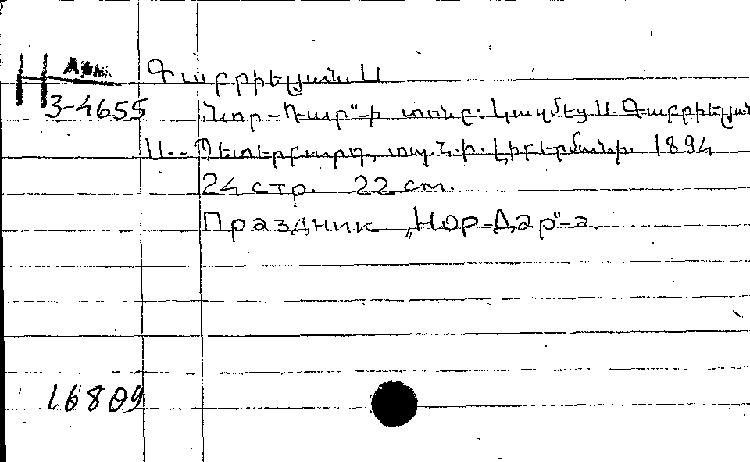 Н Арм.
3-4655
Գաբրիելյան Ա
„Նոր-Դար"-ի տոնը: Կազմէց Ա. Գաբրիելյան
Ս.-Պետերբուրգ, տպ. Ն.ի. Լիբերմանի. 1894
24 стр. 22 cm.
Праздник „Нор-Дар"-а.
16809